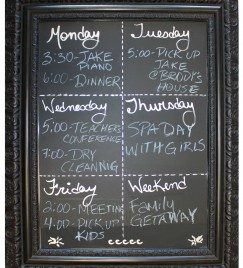 Monday
3:30-JAKE
PIANO
6:00-DINNER
Tuesday
5:00-PICK UP
JAKE
@BRODY'S
HOUSE
Wednesday
5:00-TEACHERS
CONFERENCE
7:00-DRY
CLEANNIG
Thursday
SPA DAY
WITH GIRLS
Friday
2:00-MEETING
4:00-PICK UP
KIDS
Weekend
Family
GETAWAY